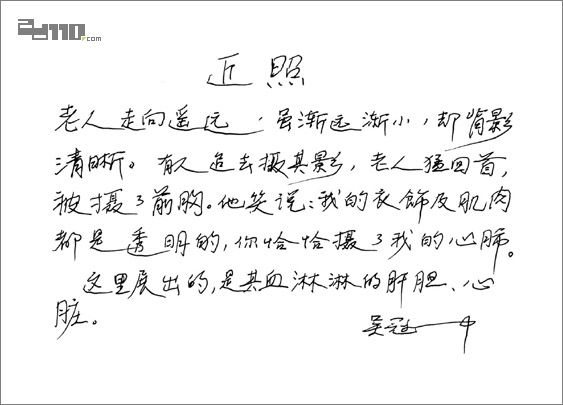 2d110.com
近照
老人走向遥远，虽渐远渐小，却背影
清晰。有人追去摄其影，老人猛回首，
被摄了前胸。他笑说：我的衣饰及肌肉
都是透明的，你恰恰摄了我的心肺。
这里展出的，是其血淋淋的肝胆、心
脏。
吴冠中